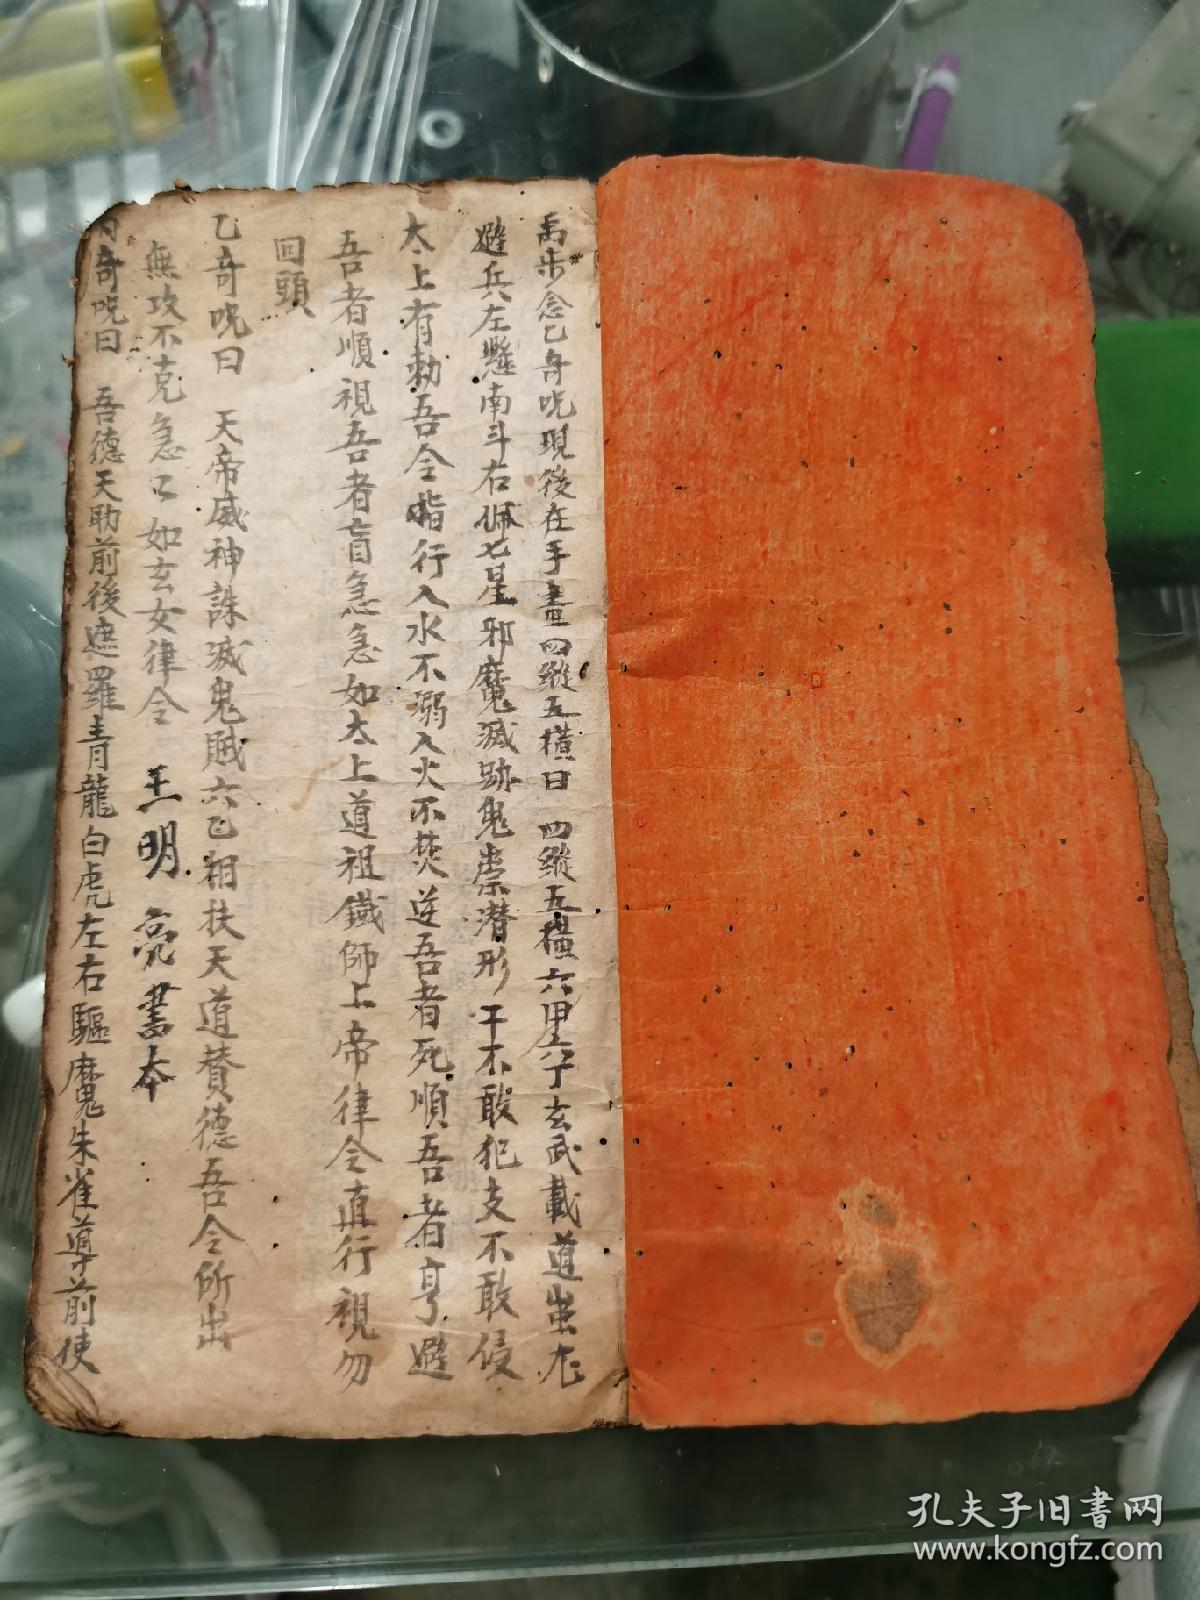 禹步念乙奇咒現後在手畫四縱五橫曰 四縱五橫六甲六子玄武載道蚩尤
避兵左懸南斗右佩七星邪魔滅跡鬼祟潛形干不敢犯支不敢侵
太上有勅吾令偕行入水不溺入火不焚逆吾者死順吾者亨避
吾者順視吾者盲急急如太上道祖鐵師上帝律令直行視勿
回頭
乙奇咒曰 天帝威神誅滅鬼賊六乙相扶天道贊德吾令所出
無攻不克急々如玄女律令 王明亮書本
丙奇咒曰 吾德天助前後遮羅青龍白虎左右驅魔朱雀導前使
孔夫子旧书网
www.kongfz.com